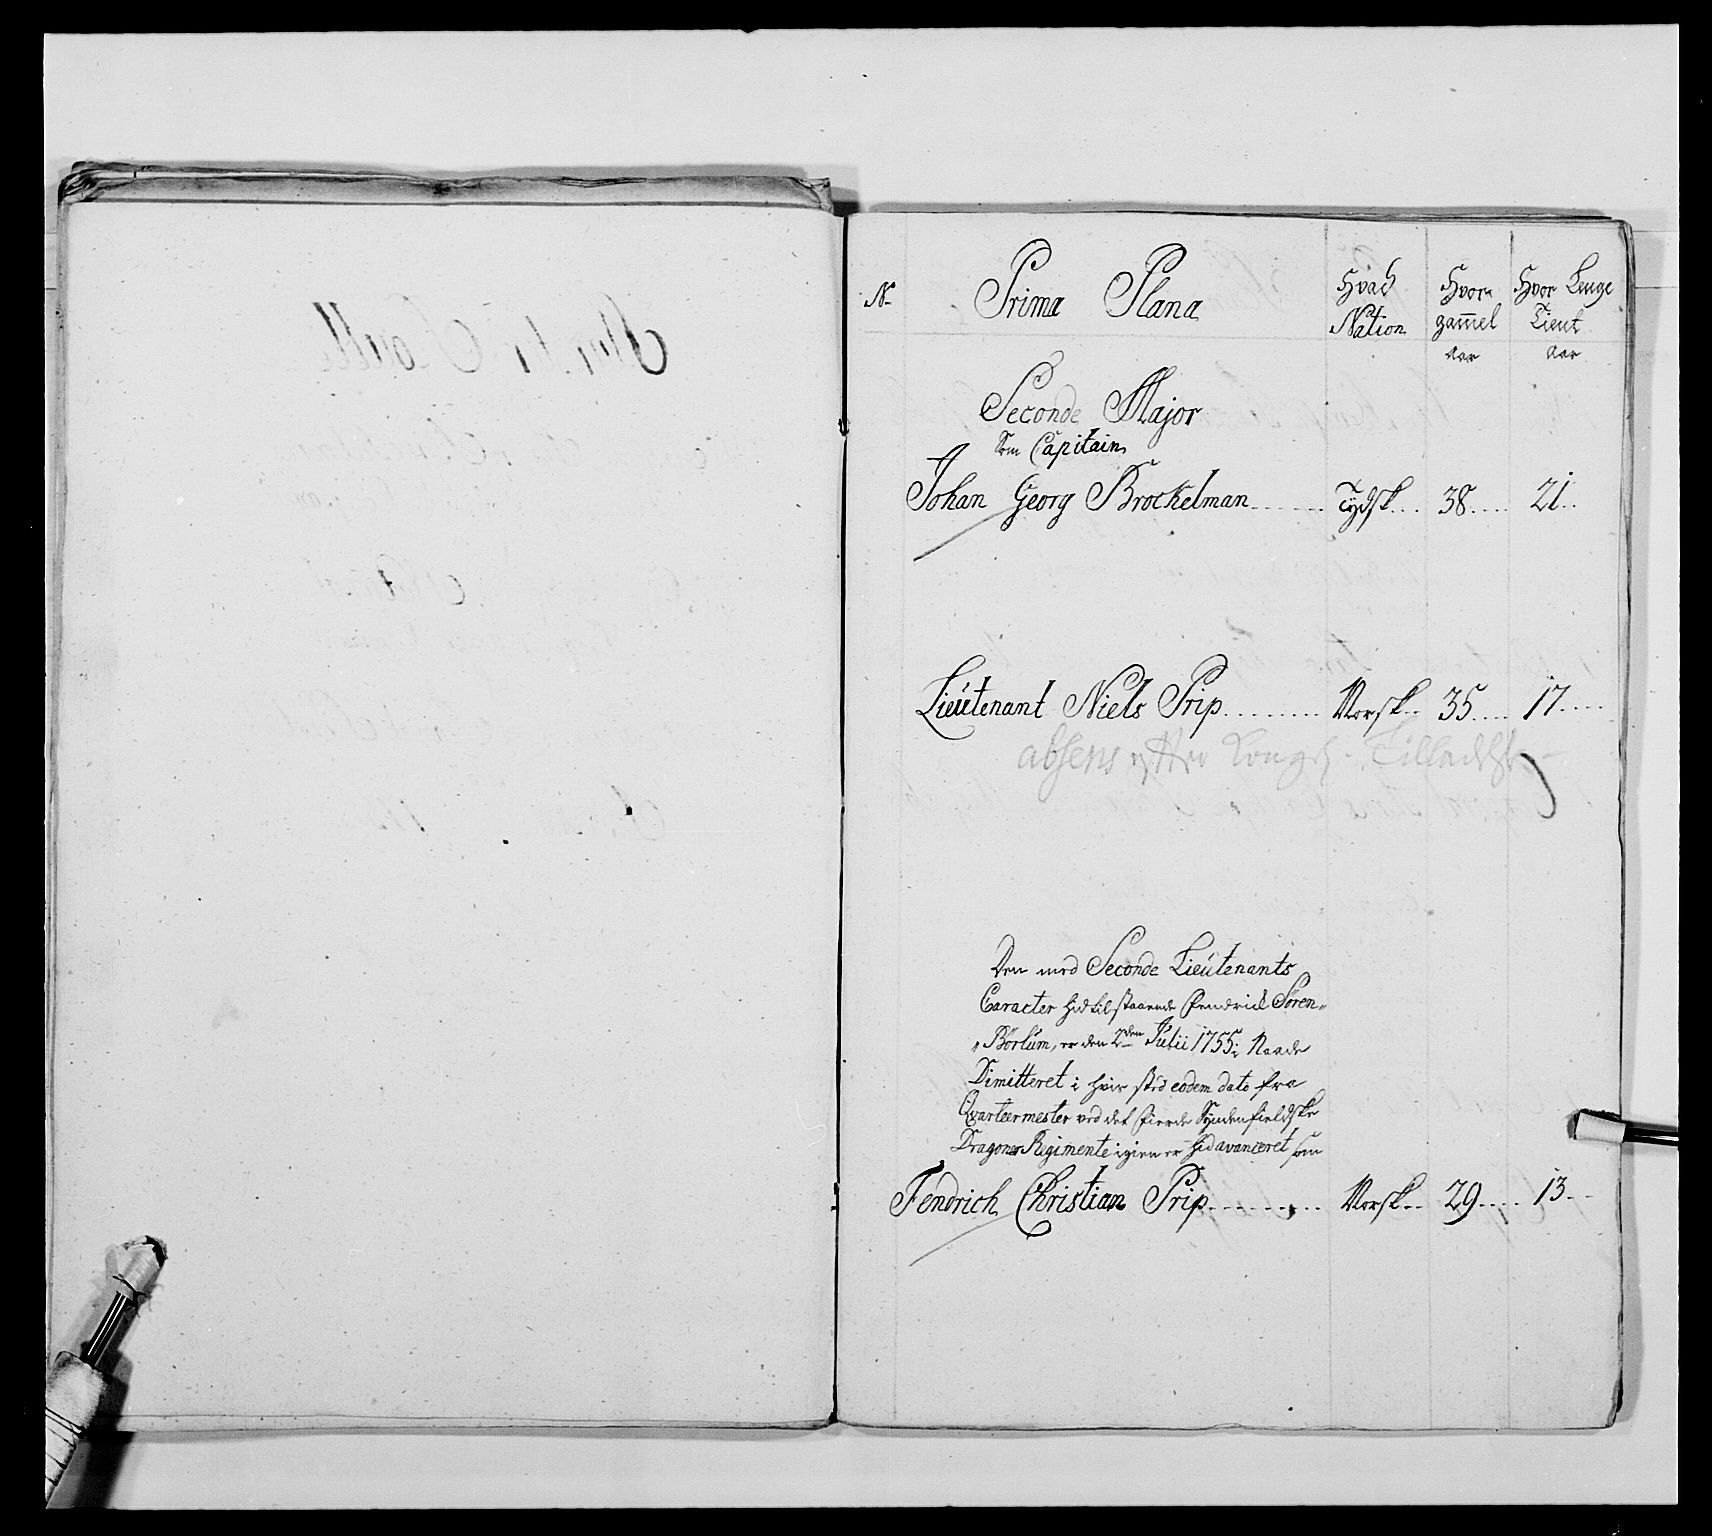 No Prima Plana Hvad Nation Hvor gammel Aar Hvor Lenge Tient Aar
Seconde Major
Som Capitain
Johan Georg Brockelman Tydsk 38 21
Lieutenant Niels Prip Norsk 35 17
absens efter Kongl. Tilladelse
Den med Seconde Lieutenants
Caracter hidtil staaende Fendrich Sören
Börlum, er den 2den Julii 1755 i Naade
Dimitteret i hvis sted eodem dato fra
Qvarteermester ved det fierde Syndenfieldske
Dragoner Regimente igien er hid avanceret som
Fendrich Christian Prip Norsk 29 13